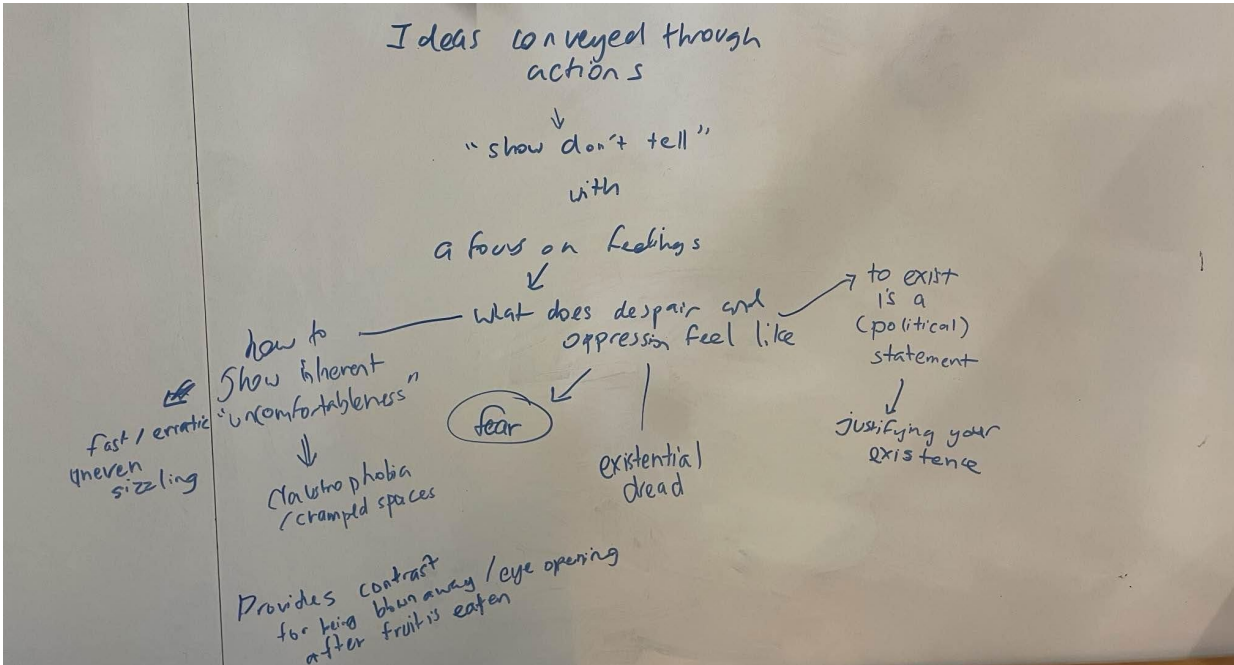 Ideas conveyed through
actions
"show don't tell"
with
a focus on feelings
what does despair and
oppression feel like
to exist
is a
(political)
statement
justifying your
existence
how to
show inherent
"uncomfortableness"
fast / erratic
uneven
sizzling
claustrophobia
/cramped spaces
fear
existential
dread
Provides contrast
for being blown away / eye opening
after fruit is eaten